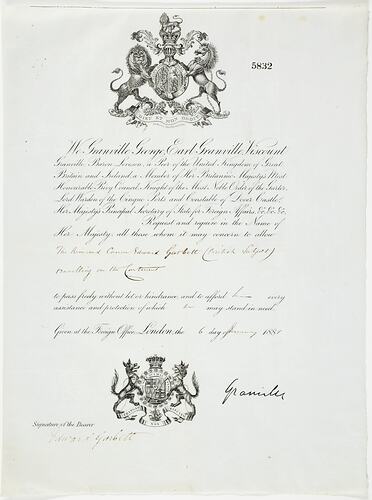 5832
DIEU ET MON DROIT
We Granville George, Earl Granville, Viscount
Granville, Baron Leveson, a Peer of the United Kingdom of Great
Britain and Ireland, a Member of Her Britannic Majesty's Most
Honourable Privy Council, Knight of the Most Noble Order of the Garter,
Lord Warden of the Cinque Ports and Constable of Dover Castle,
Her Majesty's Principal Secretary of State for Foreign Affairs, &c. &c. &c.
Request and require in the Name of
Her Majesty, all those whom it may concern to allow
The Reverend Edward Garbett (British Subject)
travelling on the Continent
to pass freely without let or hindrance, and to afford every
assistance and protection of which may stand in need.
Given at the Foreign Office, London, the 6 day of 188
Granville
Signature of the Bearer
Edward Garbett